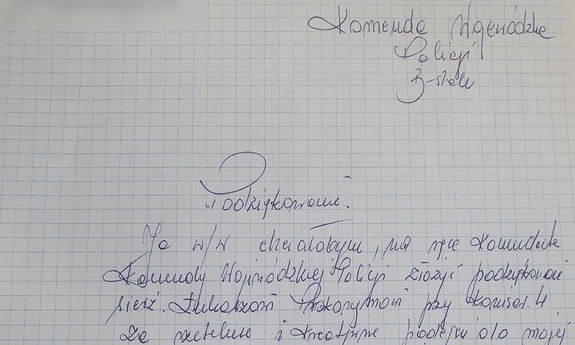 Komenda Wojewódzka
Policji
B-stok
Podziękowanie.
Ja w/w chciałabym, na ręce Komendanta
Komendy Wojewódzkiej Policji złożyć podziękowani
sierż. Łukaszowi przy Komis. 4
za rzetelne i podejście do mojej